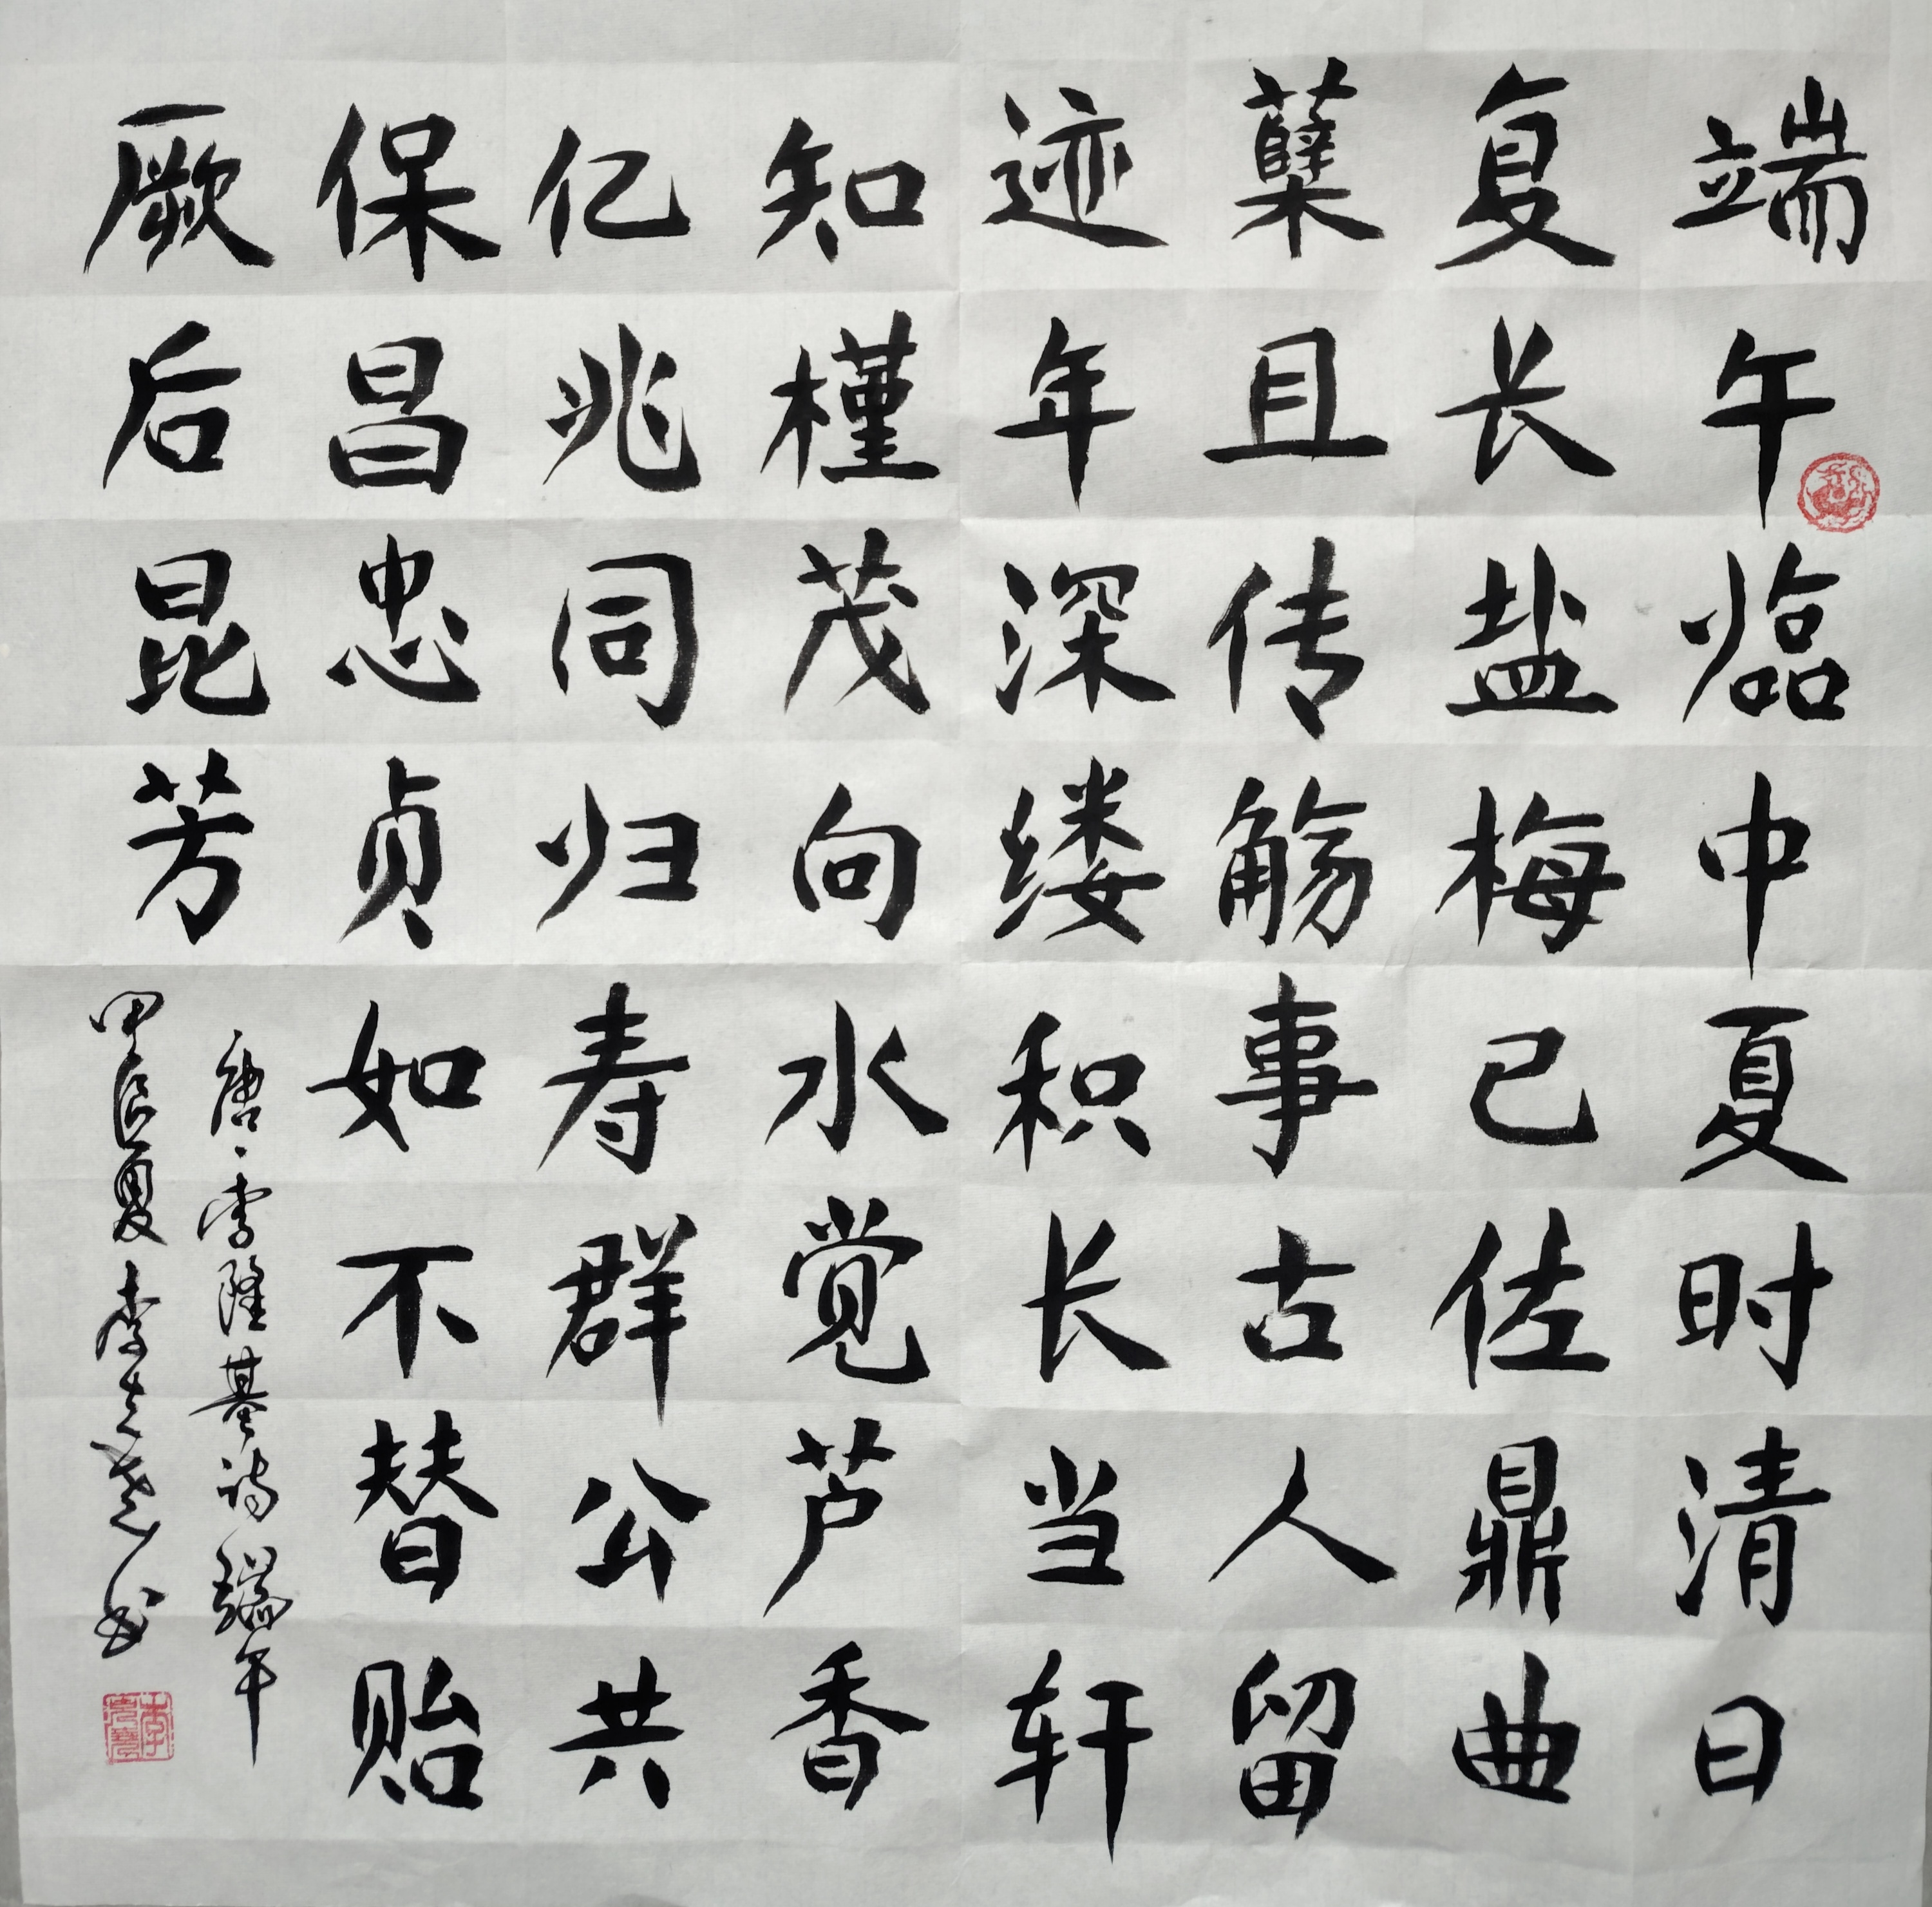 端午临中夏时清日
复长盐梅已佐鼎曲
蘖且传觞事古人留
迹年深缕积长当轩
知槿茂向水觉芦香
亿兆同归寿群公共
保昌忠贞如不替贻
厥后昆芳
唐·李隆基诗端午
甲辰夏李书